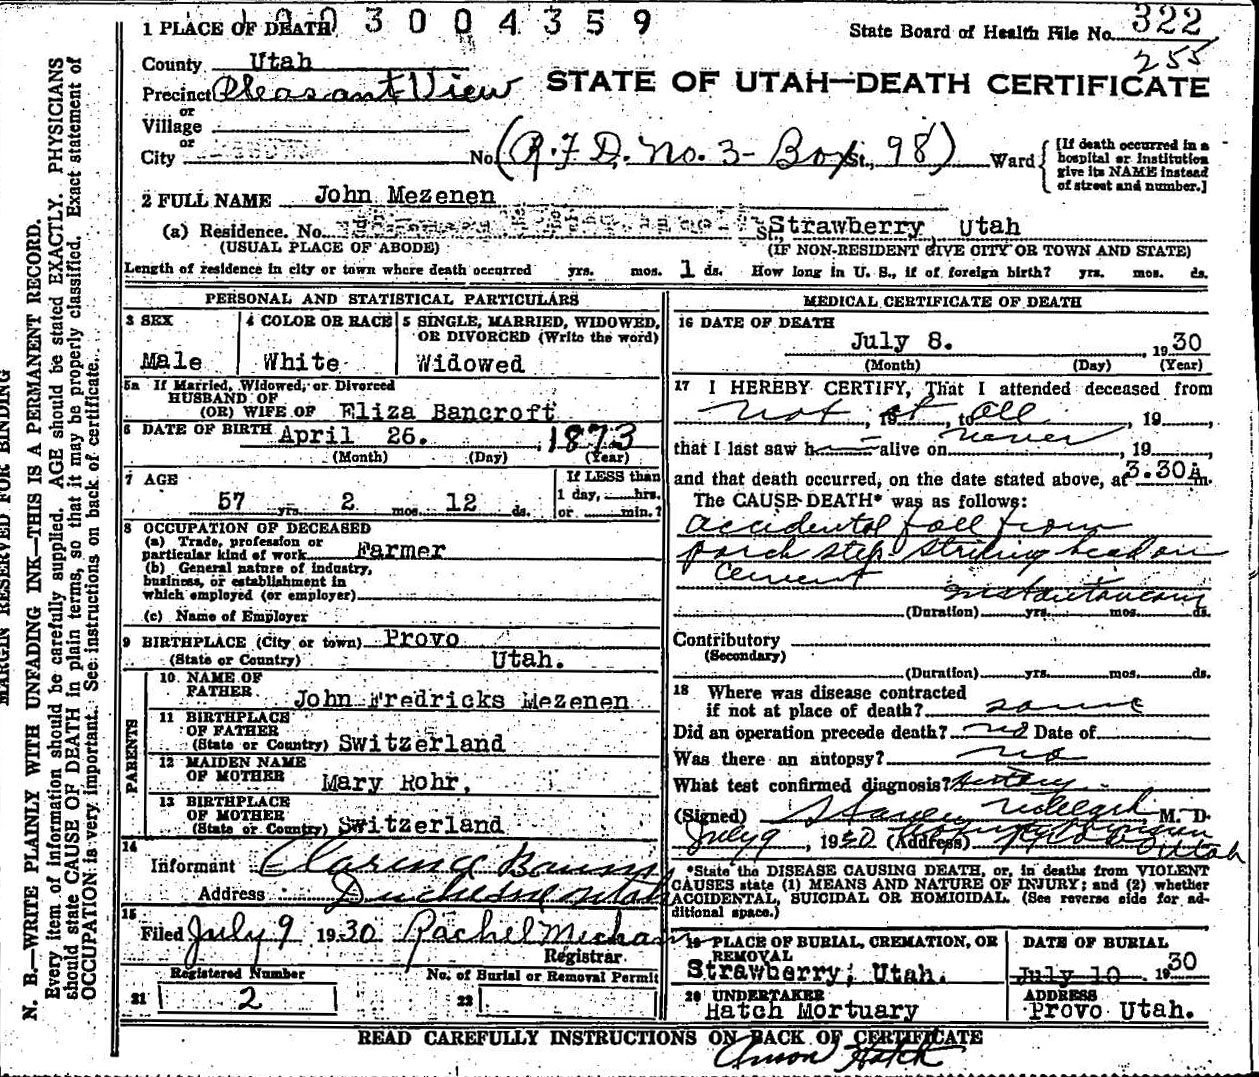 1003004359
1 PLACE OF DEATH
State Board of Health File No. 322
255
County Utah
STATE OF UTAH—DEATH CERTIFICATE
Precinct Pleasant View
or
Village
or
City
No. (R.F.D. No. 3- Box St., 98) Ward
[If death occurred in a hospital or institution give its NAME instead of street and number.]
2 FULL NAME John Mezenen
(a) Residence. No. St., Strawberry, Utah
(USUAL PLACE OF ABODE) (IF NON-RESIDENT GIVE CITY OR TOWN AND STATE)
Length of residence in city or town where death occurred yrs. mos. 1 ds. How long in U. S., if of foreign birth? yrs. mos. ds.
PERSONAL AND STATISTICAL PARTICULARS
3 SEX
Male
4 COLOR OR RACE
White
5 SINGLE, MARRIED, WIDOWED,
OR DIVORCED (Write the word)
Widowed
5a If Married, Widowed, or Divorced
HUSBAND OF
(OR) WIFE OF Eliza Bancroft
6 DATE OF BIRTH April 26. , 1873
(Month) (Day) (Year)
7 AGE
57 yrs. 2 mos. 12 ds.
If LESS than
1 day, hrs.
or min.?
8 OCCUPATION OF DECEASED
(a) Trade, profession or
particular kind of work Farmer
(b) General nature of industry,
business, or establishment in
which employed (or employer)
(c) Name of Employer
9 BIRTHPLACE (City or town) Provo
(State or Country) Utah.
PARENTS
10 NAME OF
FATHER John Fredricks Mezenen
11 BIRTHPLACE
OF FATHER
(State or Country) Switzerland
12 MAIDEN NAME
OF MOTHER Mary Rohr,
13 BIRTHPLACE
OF MOTHER
(State or Country) Switzerland
14
Informant Clarence Baum
Address Duchesne Utah
15
Filed July 9 1930 Rachel Mecham
Registrar.
Registered Number No. of Burial or Removal Permit
21 2 22
MEDICAL CERTIFICATE OF DEATH
16 DATE OF DEATH
July 8. , 1930
(Month) (Day) (Year)
17 I HEREBY CERTIFY, That I attended deceased from
not , 19 at , to all , 19 ,
that I last saw h alive on never , 19 ,
and that death occurred, on the date stated above, at 3.30A m.
The CAUSE DEATH* was as follows:
accidental fall from
porch step striking head on
cement
instantaneous
(Duration) yrs. mos. ds.
Contributory
(Secondary)
(Duration) yrs. mos. ds.
18 Where was disease contracted
if not at place of death? same
Did an operation precede death? no Date of
Was there an autopsy? no
What test confirmed diagnosis? history
(Signed) , M. D.
July 9 , 1930 (Address) Utah
*State the DISEASE CAUSING DEATH, or, in deaths from VIOLENT
CAUSES state (1) MEANS AND NATURE OF INJURY; and (2) whether
ACCIDENTAL, SUICIDAL OR HOMICIDAL. (See reverse side for ad-
ditional space.)
19 PLACE OF BURIAL, CREMATION, OR
REMOVAL
Strawberry, Utah.
DATE OF BURIAL
July 10 1930
20 UNDERTAKER
Hatch Mortuary
ADDRESS
Provo Utah.
READ CAREFULLY INSTRUCTIONS ON BACK OF CERTIFICATE
Anson Hatch
MARGIN RESERVED FOR BINDING
N. B.—WRITE PLAINLY WITH UNFADING INK—THIS IS A PERMANENT RECORD.
Every item of information should be carefully supplied. AGE should be stated EXACTLY. PHYSICIANS
should state CAUSE OF DEATH in plain terms, so that it may be properly classified. Exact statement of
OCCUPATION is very important. See instructions on back of certificate.